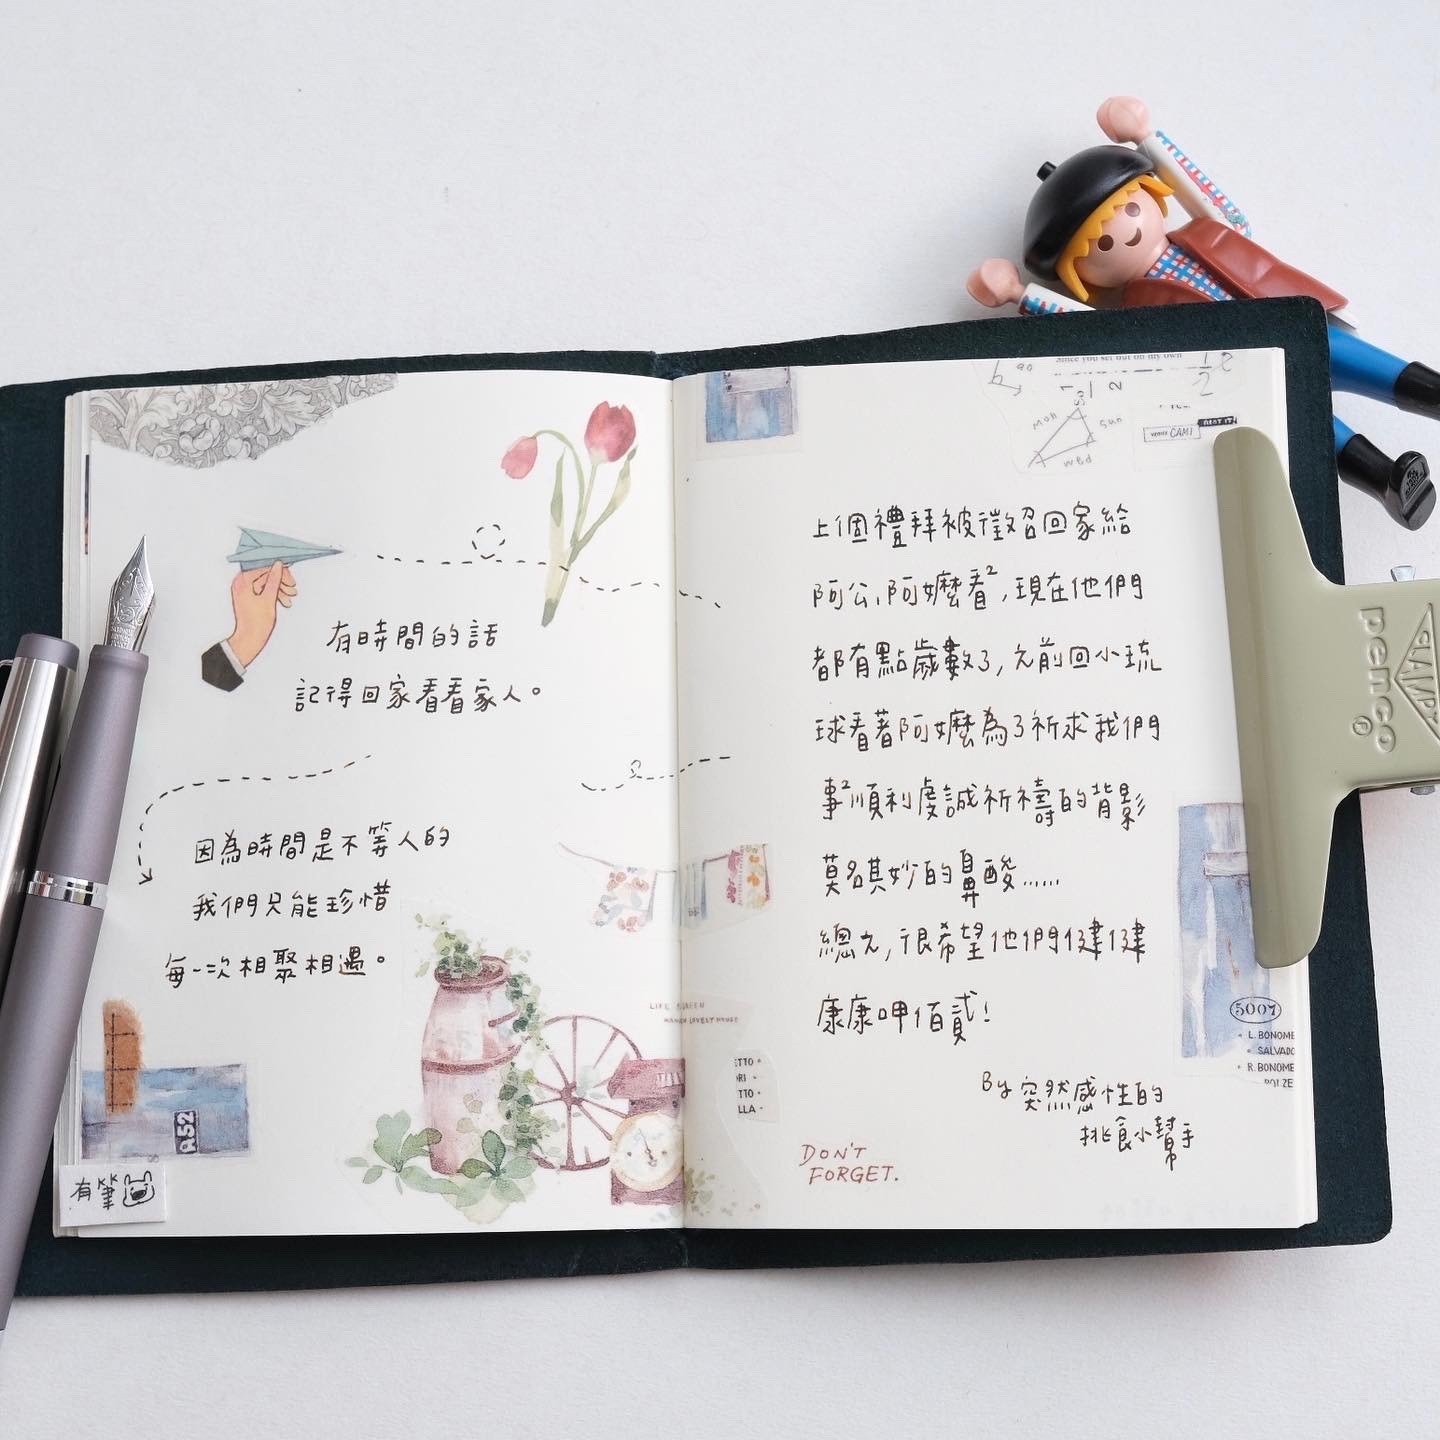 有時間的話
記得回家看看家人。
因為時間是不等人的
我們只能珍惜
每一次相聚相遇。
A52
有筆
LIFE GREEN
LOVELY HOUSE
Since you set out on my own
1
2
1
2
50
Mon
Sun
wed
CAMI
上個禮拜被徵召回家給
阿公、阿嬤看²,現在他們
都有點歲數了,之前回小琉
球看著阿嬤為了祈求我們
事²順利虔誠祈禱的背影
莫名其妙的鼻酸……
總之,很希望他們健健
康康呷佰貳!
By 突然感性的
挑食小幫手
DON'T
FORGET.
ETTO
ORI
TTO
LLA
5007
L. BONOME
SALVADO
R. BONOME
BOLZE
CLAMPY
penco